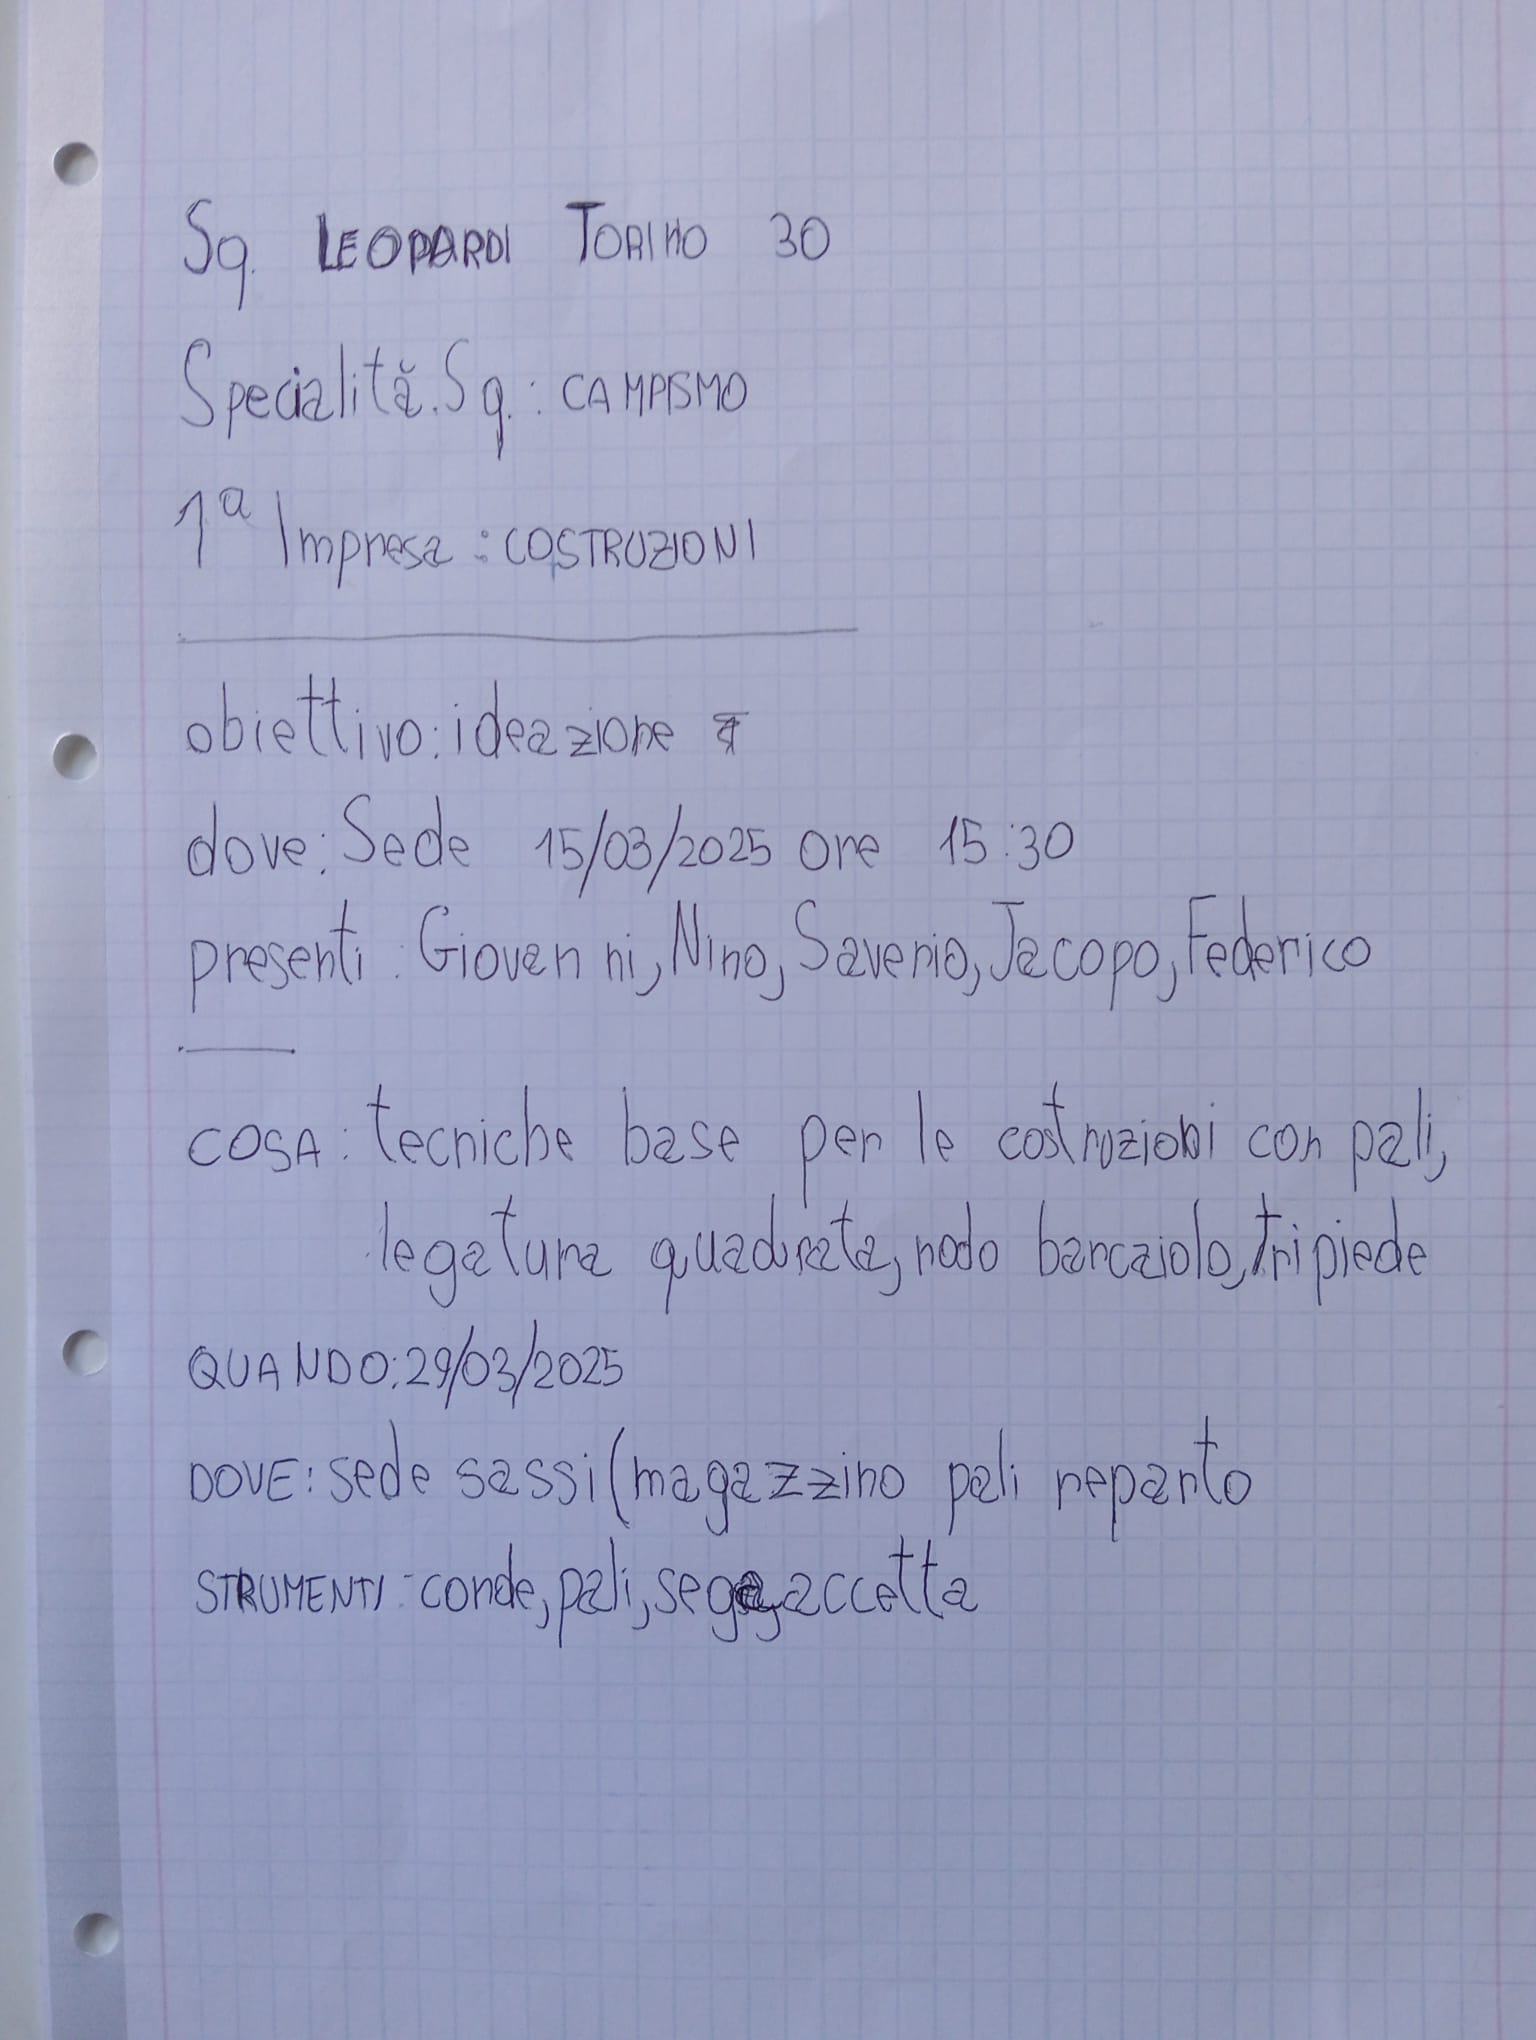 Sq. LEOPARDI TORINO 30
Specialità.Sq.: CAMPISMO
1ª Impresa: COSTRUZIONI
obiettivo: ideazione
dove: Sede 15/03/2025 ore 15:30
presenti: Giovanni, Nino, Saverio, Jacopo, Federico
COSA: tecniche base per le costruzioni con pali,
legatura quadrata, nodo barcaiolo, tripiede
QUANDO: 29/03/2025
DOVE: sede sassi (magazzino pali reparto
STRUMENTI: corde, pali, sega, accetta